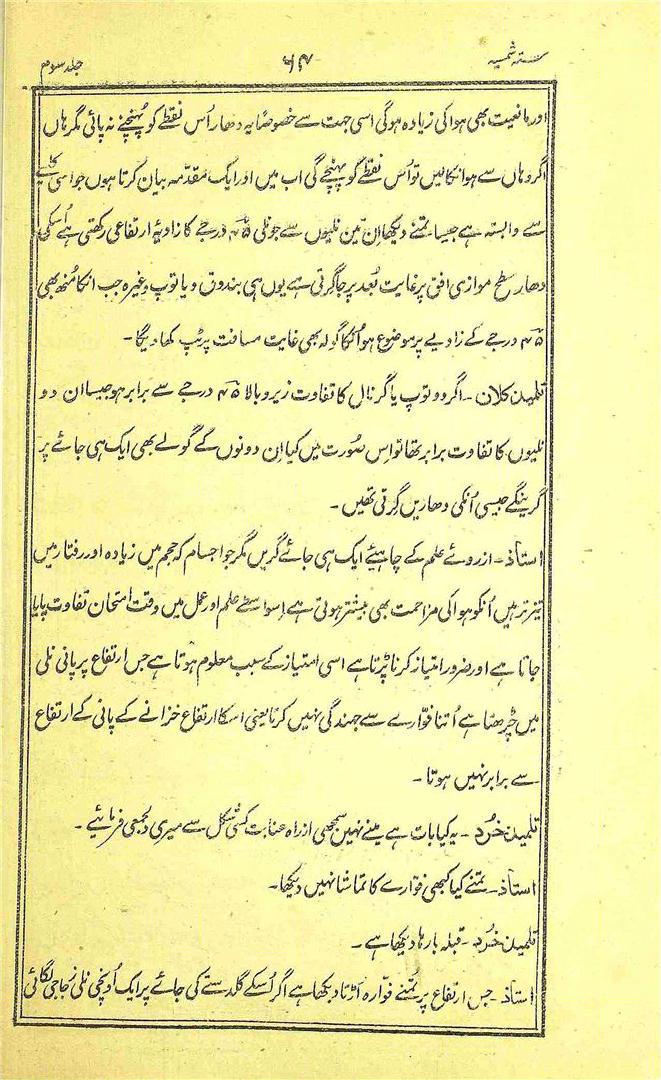 ستہ شمسیہ ۶۴ جلد سوم
اور مانعیت بھی ہوا کی زیادہ ہوگی اسی جہت سے خصوصاً یہ دھار اُس نقطے کو پُہنچنے نہ پائی مگر ہاں
اگر وہاں سے ہوا نکالیں تو اُس نقطے کو پہنچے گی اب میں اور ایک مقدّمہ بیان کرتا ہوں جو اسی قاعدے
سے وابستہ ہے جیسا تمنے دیکھا اِن تین نلیوں سے جو نلی ۴۵ درجے کا زاویۂ ارتفاعی رکھتی ہے اُسکی
دھار سطح موازی افق پر غایت بُعد پر جا گرتی ہے یوں ہی بندوق و یا توپ وغیرہ جب انکا مُنھ بھی
۴۵ درجے کے زاویے پر موضوع ہو اُنکا گولہ بھی غایت مسافت پر ٹپ کھاویگا۔
تلمیذ کلان۔ اگر دو توپ یا گرنال کا تفاوت زیر و بالا ۴۵ درجے سے برابر ہو جیسا ان دو
نلیوں کا تفاوت برابر تھا تو اس صورت میں کیا اِن دونوں کے گولے بھی ایک ہی جائے پر
گرینگے جیسی اُنکی دھاریں گرتی تھیں۔
استاذ۔ از روئے علم کے چاہیئے ایک ہی جائے گریں مگر جو اجسام کہ حجم میں زیادہ اور رفتار میں
تیزتر ہیں اُنکو ہوا کی مزاحمت بھی بیشتر ہوتی ہے اِسواسطے علم اور عمل میں وقت امتحان تفاوت پایا
جاتا ہے اور ضرور امتیاز کرنا پڑتا ہے اسی امتیاز کے سبب معلوم ہوتا ہے جس ارتفاع پر پانی نلی
میں چڑھتا ہے اُتنا فوّارے سے جہندگی نہیں کرتا یعنی اسکا ارتفاع خزانے کے پانی کے ارتفاع
سے برابر نہیں ہوتا۔
تلمیذ خُرد۔ یہ کیا بات ہے مینے نہین سمجھی از راہ عنایت کسی شکل سے میری دلجمعی فرمائیے۔
استاذ۔ تمنے کیا کبھی فوّارے کا تماشا نہیں دیکھا۔
تلمیذ خُرد۔ قبلہ بارہا دیکھا ہے۔
استاذ۔ جس ارتفاع پر تُمنے فوّارہ اُڑتا دیکھا ہے اگر اُسکے گلدستے کی جائے پر ایک اُونچی نلی زجاجی لگائی